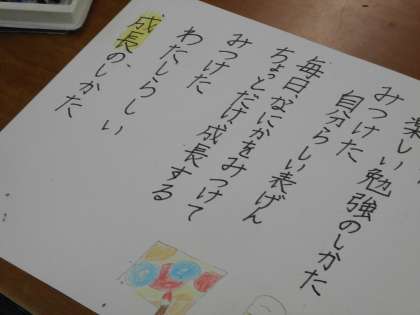 楽しい勉強のしかた
みつけた
自分らしい表げん
毎日、なにかをみつけて
ちょっとだけ成長する
みつけた
わたしらしい
成長の、しかた